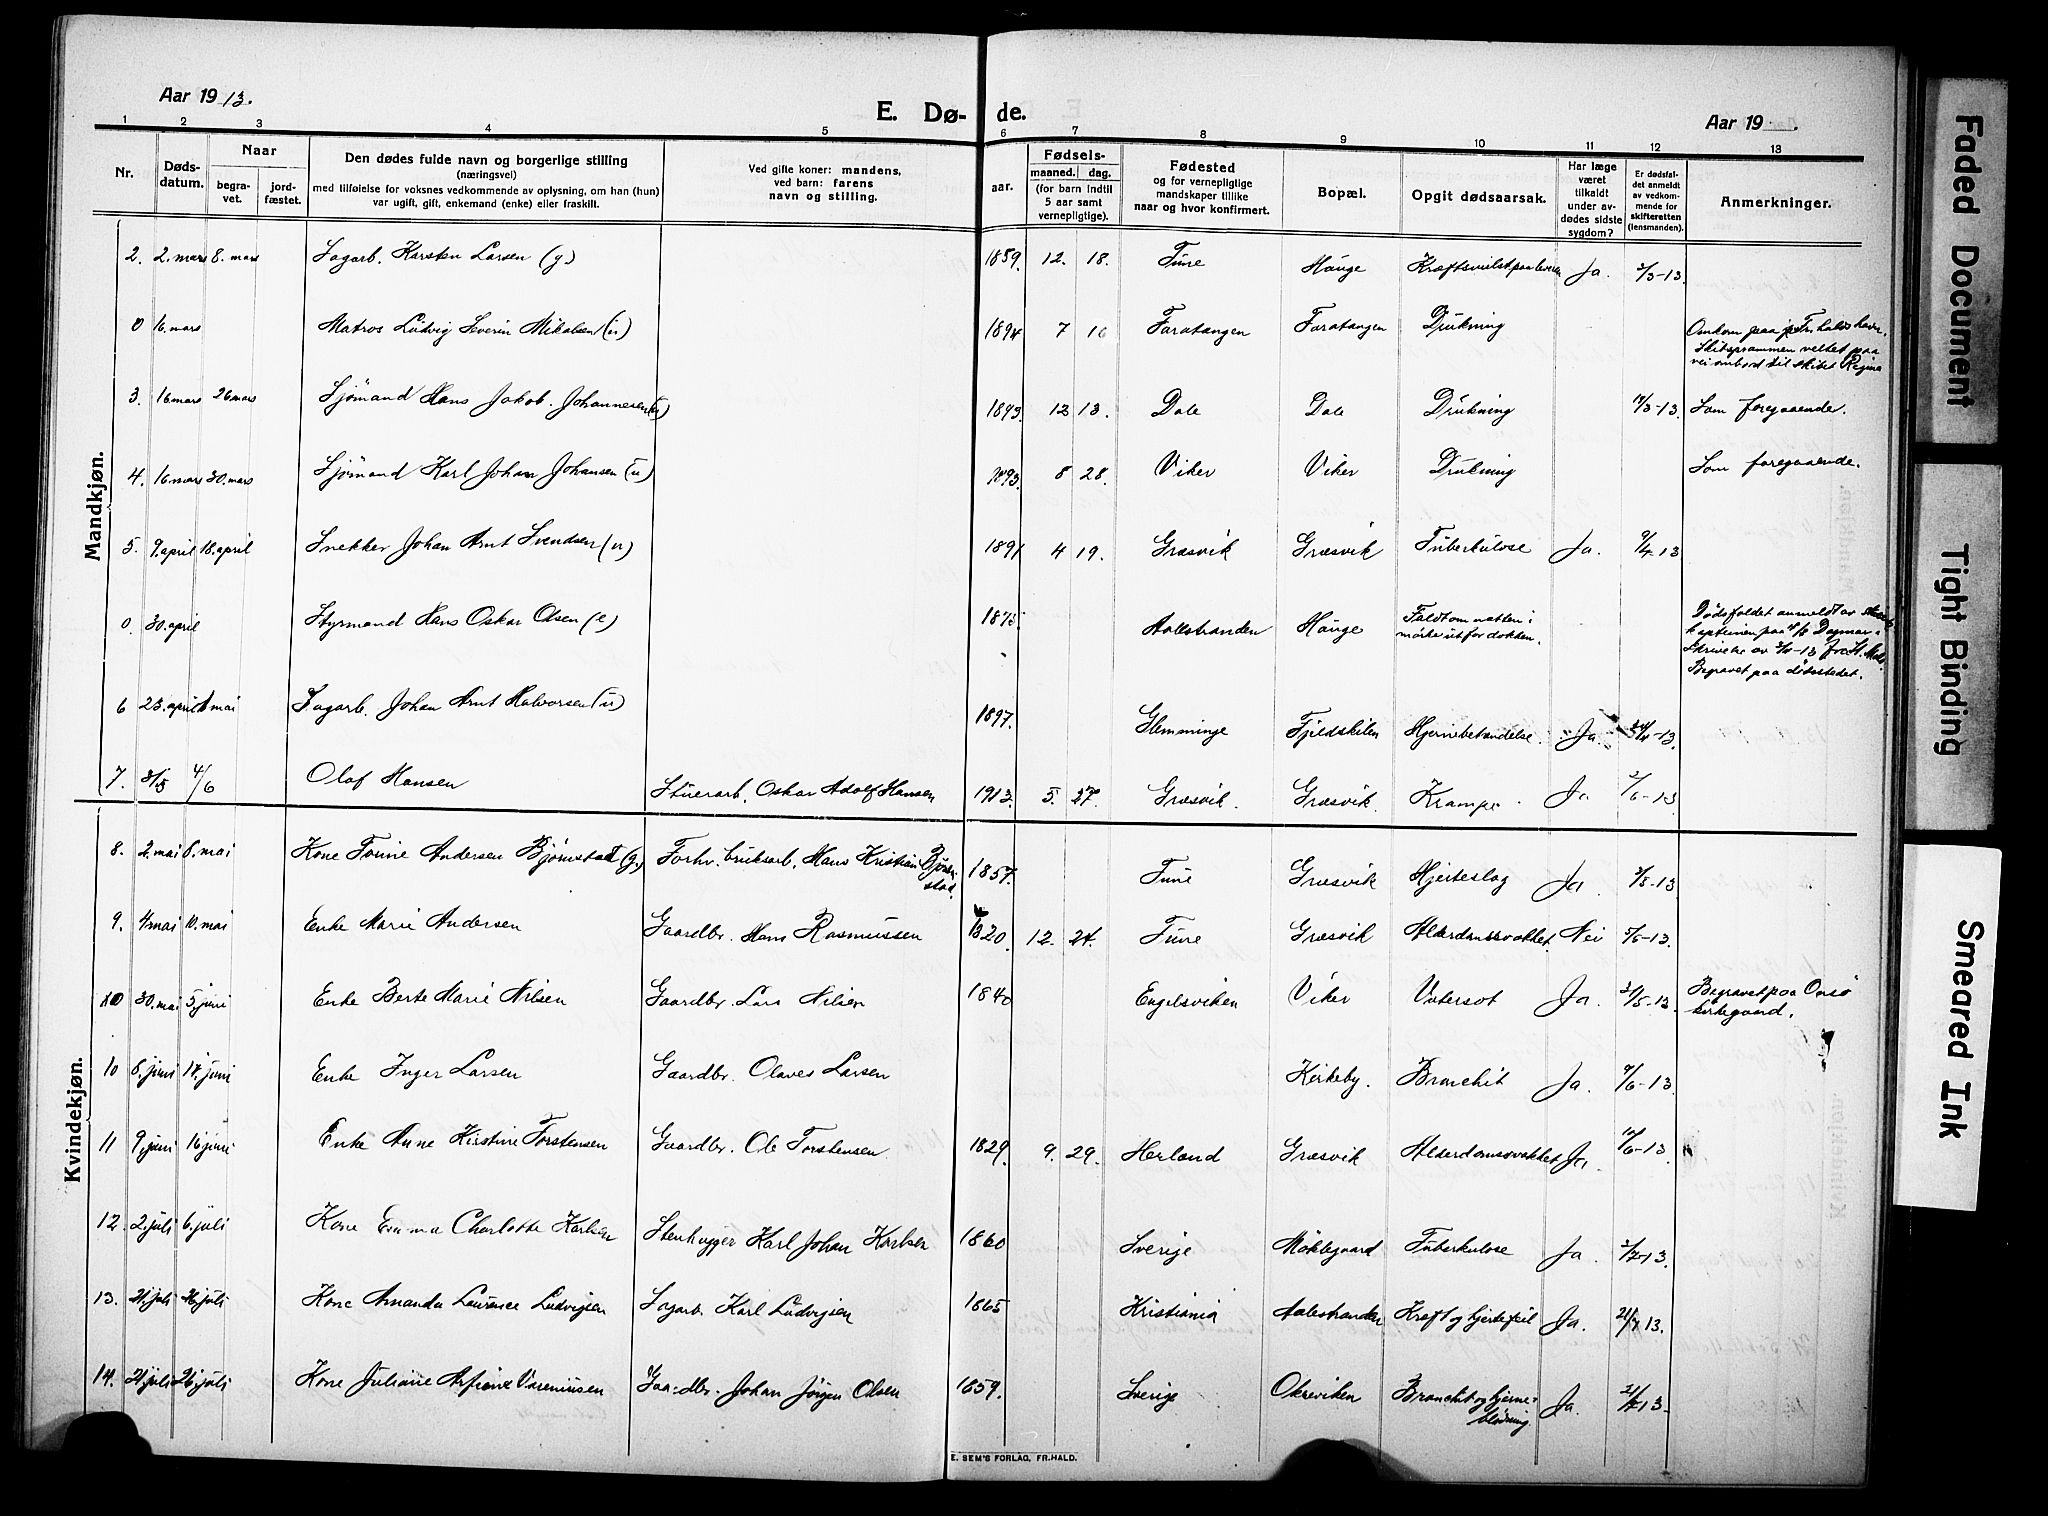 Aar 1913.
E. Dø- de.
Aar 19
1 2 3 4 5 6 7 8 9 10 11 12 13
Nr.
Døds-
datum.
Naar
begra-
vet.
jord-
fæstet.
Den dødes fulde navn og borgerlige stilling
(næringsvei)
med tilføielse for voksnes vedkommende av oplysning, om han (hun)
var ugift, gift, enkemand (enke) eller fraskilt.
Ved gifte koner: mandens,
ved barn: farens
navn og stilling.
aar.
Fødsels-
maaned. dag.
(for barn indtil
5 aar samt
vernepligtige).
Fødested
og for vernepligtige
mandskaper tillike
naar og hvor konfirmert.
Bopæl.
Opgit dødsaarsak.
Har læge
været
tilkaldt
under av-
dødes sidste
sygdom?
Er dødsfal-
det anmeldt
av vedkom-
mende for
skifteretten
(lensmanden).
Anmerkninger.
Mandkjøn.
2. 2. mars 8. mars Sagarb. Karsten Larsen (g.) 1859. 12. 18. Tune Hauge Kræftsvulst paa leveren Ja. 3/3-13.
0 16. mars Matros Ludvig Severin Mikalsen (u) 1894 7 16 Faratangen Faratangen Drukning Omkom paa Fr.halds havn.
Skibsprammen veltet paa
vei ombord til skibet Regina
3. 16 mars 26 mars Sjømand Hans Jakob Johannesen (u) 1893. 12 13. Dale Dale Drukning 17/3-13. Som foregaaende.
4. 16 mars 30. mars Sjømand Karl Johan Johansen (u) 1893. 8 28. Viker Viker Drukning Som foregaaende.
5. 9. april 18. april Snekker Johan Arnt Svendsen (u) 1891 4 19. Græsvik Græsvik Tuberkulose Ja. 9/4-13
0. 30. april Styrmand Hans Oskar Olsen (e) 1875 Aalestranden Hauge Faldt om natten i
mørke utfor dokken. Dødsfaldet anmeldt av
kapteinen paa Dagmar i
Skrivelse av
Begravet paa dødsstedet.
6 23. april mai Sagarb. Johan Arnt Halvorsen (u) 1897. Glemminge Fjeldskilen Hjernebetændelse. Ja. 24/4-13.
7. 31/5 4/6 Olaf Hansen Stuerarb. Oskar Adolf Hansen 1913. 5. 27. Græsvik. Græsvik. Krampe. Ja 2/6-13
Kvindekjøn.
8. 2. mai 8. mai Kone Andersen Bjørnstad (g.) Forhv. bruksarb. Hans Kristian Bjørn-
stad. 1857. Tune Græsvik Hjerteslag Ja. 3/5-13
9. 4. mai 10. mai Enke Marie Andersen Gaardbr. Hans Rasmussen 1820. 12. 24. Tune Græsvik Alderdomssvakhet Nei 5/5-13.
0 30. mai 5. juni Enke Berte Marie Nilsen Gaardbr. Lars Nilsen 1840 Engelsviken Viker Vatersot Ja. 31/5-13 Begravet paa Onsø
kirkegaard.
10 6. juni 17. juni Enke Inger Larsen Gaardbr. Olaves Larsen Kirkeby. Bronchit Ja. 7/6-13.
11 9. juni 16 juni Enke Anne Kirstine Torstensen Gaardbr. Ole Torstensen 1829. 9. 29. Herland Græsvik Alderdomssvakhet Ja. 10/6-13.
12. 2. juli 6. juli Kone Emma Charlotte Karlsen Stenhugger Karl Johan Karlsen 1860 Sverige Møklegaard Tuberkulose Ja. 3/7-13.
13. 21. juli 26. juli Kone Amanda Laurence Ludvigsen Sagarb. Karl Ludvigsen 1865 Kristiania Aalestranden Kræft og hjertefeil Ja. 21/7 13.
14. 21. juli 26. juli Kone Juliane Varenius­sen Gaardbr. Johan Jørgen Olsen 1859. Sverige Bronchit og hjerne-
blødning. Ja. 21/7 13.
E. SEM'S FORLAG, FR.HALD.
Faded Document
Tight Binding
Smeared Ink